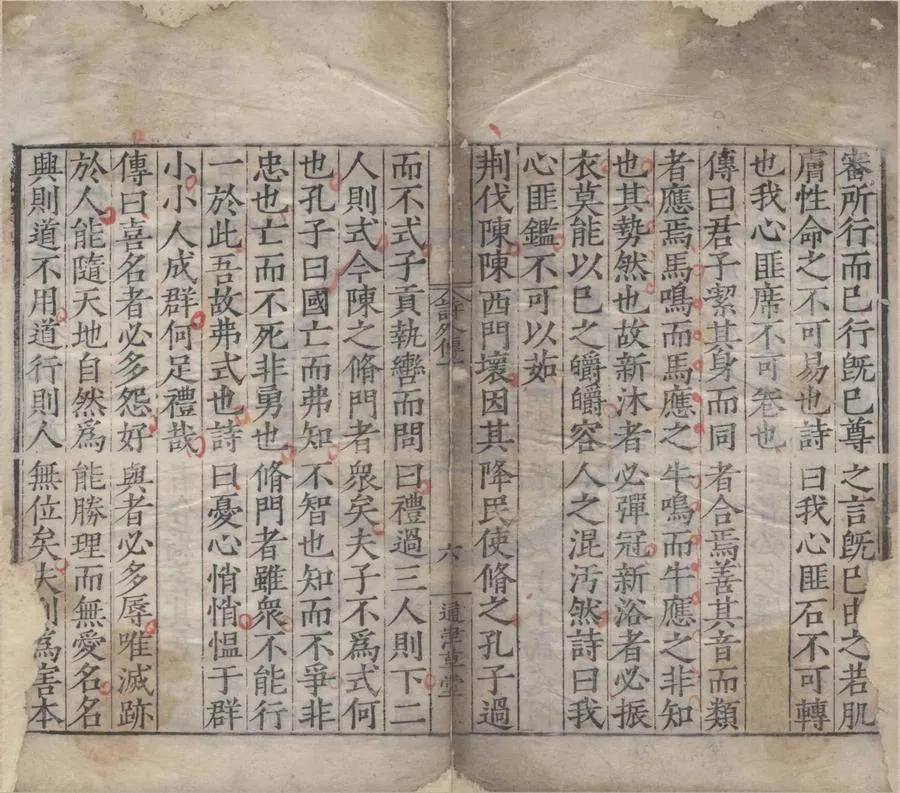 審所行而已行既已尊之言既已由之若肌
膚性命之不可易也詩曰我心匪石不可轉
也我心匪席不可卷也
傳曰君子絜其身而同者合焉善其音而類
者應焉馬鳴而馬應之牛鳴而牛應之非知
也其勢然也故新沐者必彈冠新浴者必振
衣莫能以已之皭皭容人之混汚然詩曰我
心匪鑑不可以茹
荆伐陳陳西門壞因其降民使脩之孔子過
詩外傳
六
通津草堂
而不式子貢執轡而問曰禮過三人則下二
人則式今陳之脩門者衆矣夫子不爲式何
也孔子曰國亡而弗知不智也知而不爭非
忠也亡而不死非勇也脩門者雖衆不能行
一於此吾故弗式也詩曰憂心悄悄愠于群
小小人成群何足禮哉
傳曰喜名者必多怨好與者必多辱唯滅跡
於人能隨天地自然爲能勝理而無愛名名
興則道不用道行則人無位矣夫利爲害本